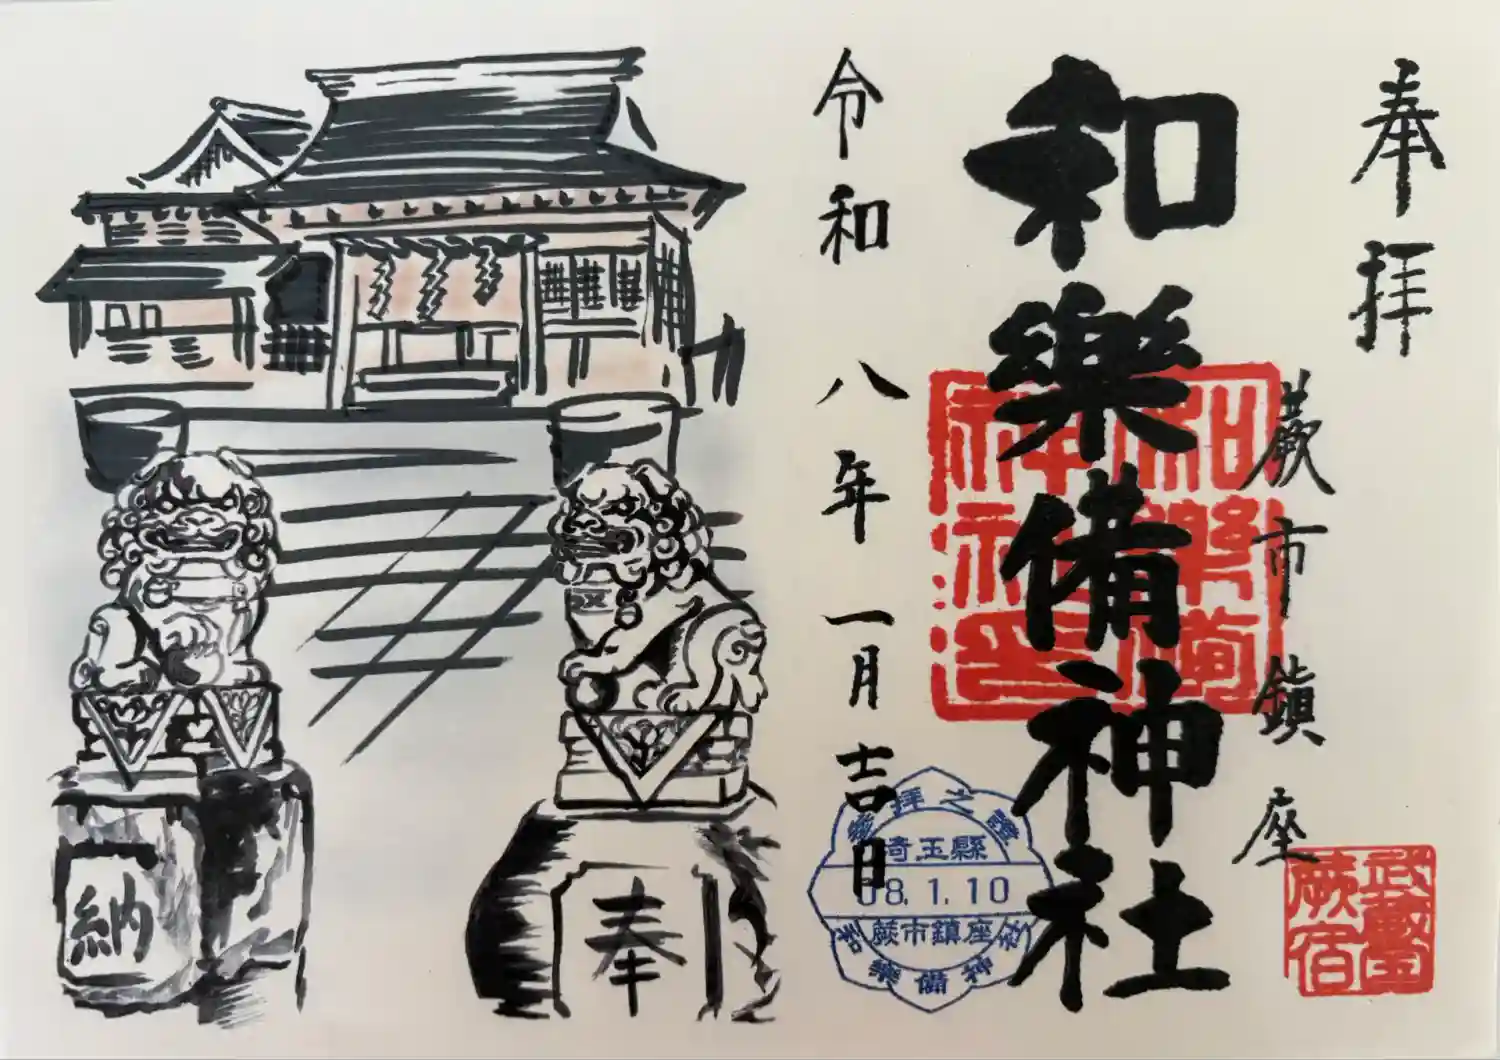 奉拝
蕨市鎮座
和樂備神社
令和八年一月吉日
和樂備
神社印
武藏国
蕨宿
参拝之證
埼玉縣
08.1.10
蕨市鎮座
和樂備神社
奉
納